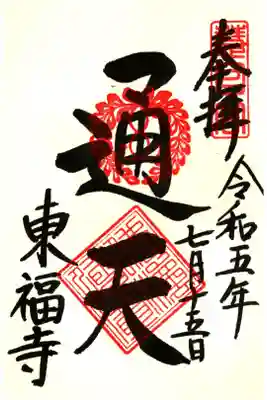 奉拝
令和五年
七月十五日
通天
東福寺